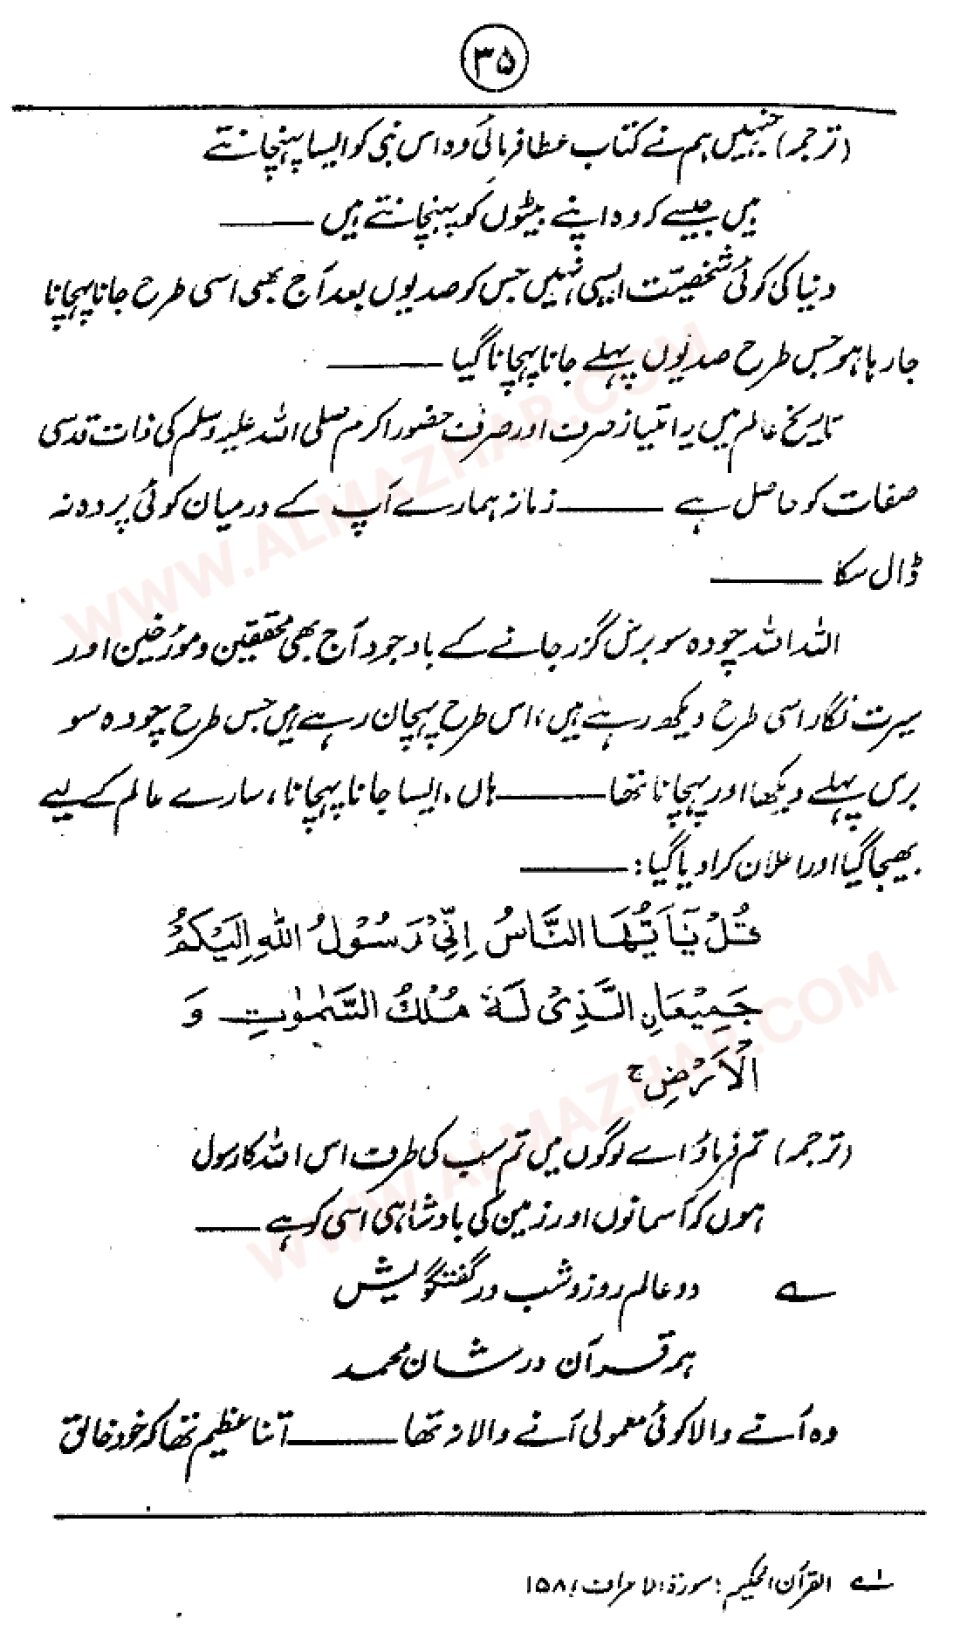 ۳۵
(ترجمہ) جنہیں ہم نے کتاب عطا فرمائی وہ اس نبی کو ایسا پہنچانتے
ہیں جیسے کہ وہ اپنے بیٹوں کو پہنچانتے ہیں ———
دنیا کی کوئی شخصیت ایسی نہیں جس کو صدیوں بعد آج بھی اسی طرح جانا پہچانا
جا رہا ہو جس طرح صدیوں پہلے جانا پہچانا گیا ———
تاریخ عالم میں یہ امتیاز صرف اور صرف حضور اکرم صلی اللہ علیہ وسلم کی ذات قدسی
صفات کو حاصل ہے ——— زمانہ ہمارے آپ کے درمیان کوئی پردہ نہ
ڈال سکا ———
اللہ اللہ چودہ سو برس گزر جانے کے باوجود آج بھی محققین و مؤرخین اور
سیرت نگار اسی طرح دیکھ رہے ہیں، اس طرح پہچان رہے ہیں جس طرح چودہ سو
برس پہلے دیکھا اور پہچانا تھا ——— ہاں، ایسا جانا پہچانا، سارے عالم کے لیے
بھیجا گیا اور اعلان کرا دیا گیا: ———
قُلْ يٰٓاَيُّهَا النَّاسُ اِنِّيْ رَسُوْلُ اللهِ اِلَيْكُمْ
جَمِيْعَاِن الَّذِيْ لَهٗ مُلْكُ السَّمٰوٰتِ وَ
الْاَرْضِ ج
(ترجمہ) تم فرماؤ اے لوگوں میں تم سب کی طرف اس اللہ کا رسول
ہوں کہ آسمانوں اور زمین کی بادشاہی اسی کو ہے ———
ے دو عالم روز و شب در گفتگویش
ہمہ قرآن در شان محمد
وہ آنے والا کوئی معمولی آنے والا نہ تھا ——— اتنا عظیم تھا کہ خود خالق
۱ے القرآن الحکیم: سورۃ الاعراف: ۱۵۸
WWW.ALMAZHAR.COM
WWW.ALMAZHAR.COM